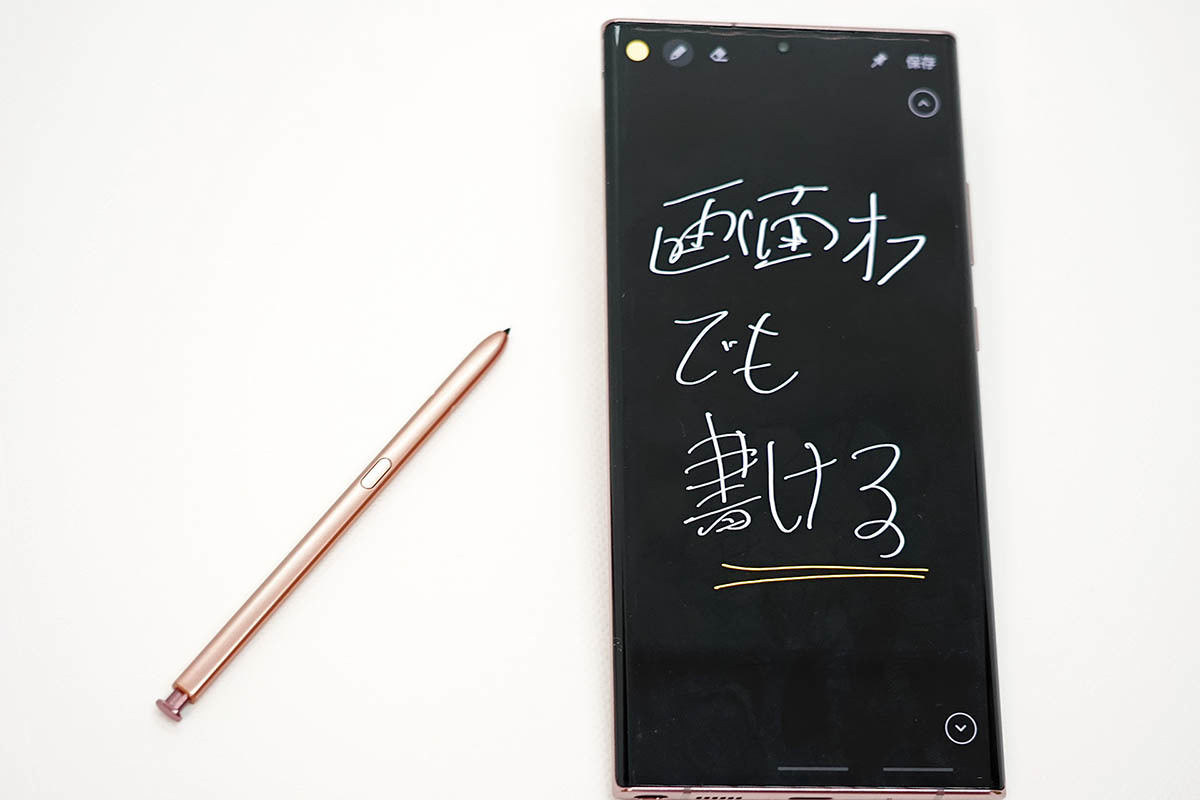 保存
画面オフ
でも
書ける